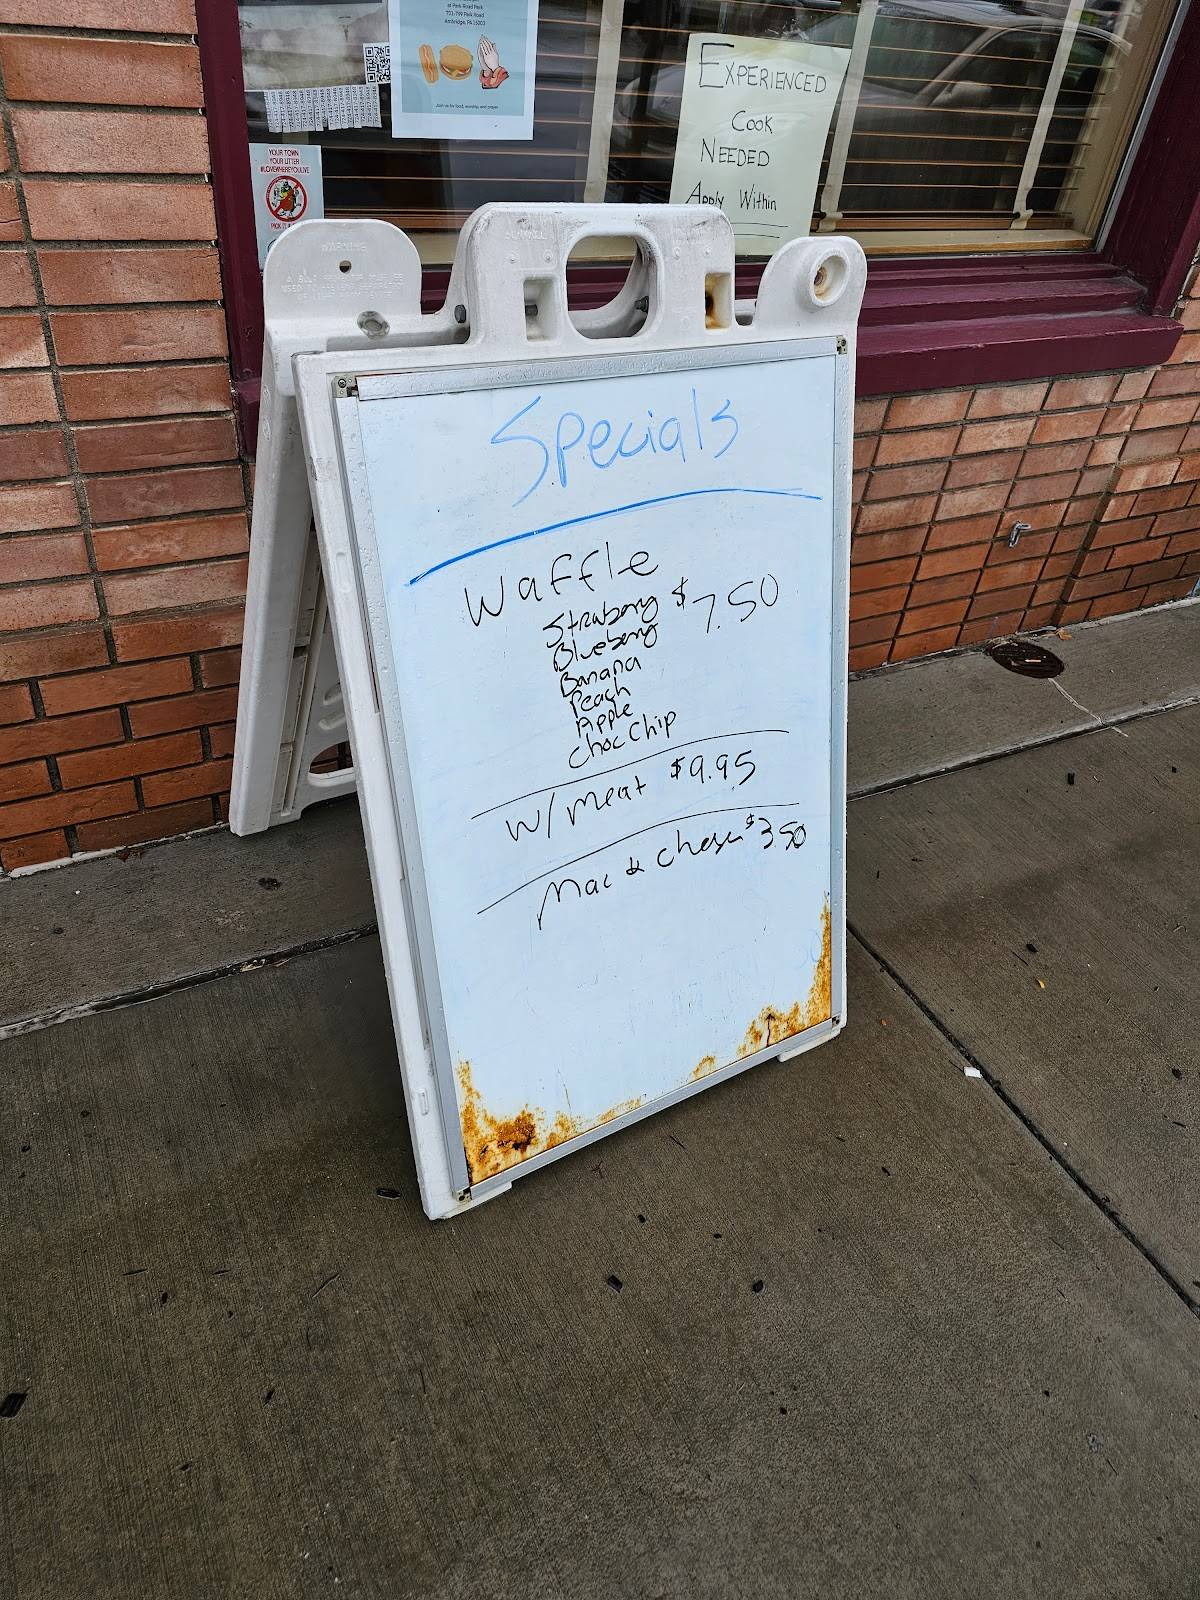 at Park Road Park
701-799 Park Road
Ambridge, PA 15003
Join us for food, worship, and prayer
EXPERIENCED
COOK
NEEDED
Apply Within
YOUR TOWN
YOUR LITTER
#LOVEWHEREYOULIVE
WARNING
Specials
Waffle
Strawberry $7.50
Blueberry
Banana
Peach
Apple
Choc Chip
w/ meat $9.95
Mac & Cheese $3.50